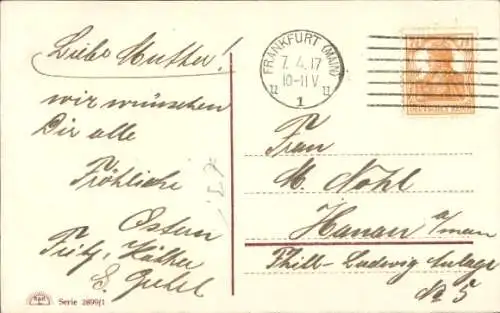 Liebe Mutter!
wir wünschen
Dir alle
Fröhliche
Ostern
Fritz, Käthe
Serie 2899/1
FRANKFURT (MAIN)
7.4.17
10-11 V
1
Frau
M. Nohl
Hanau a/main
Phill-Ludwig Anlage
No 5